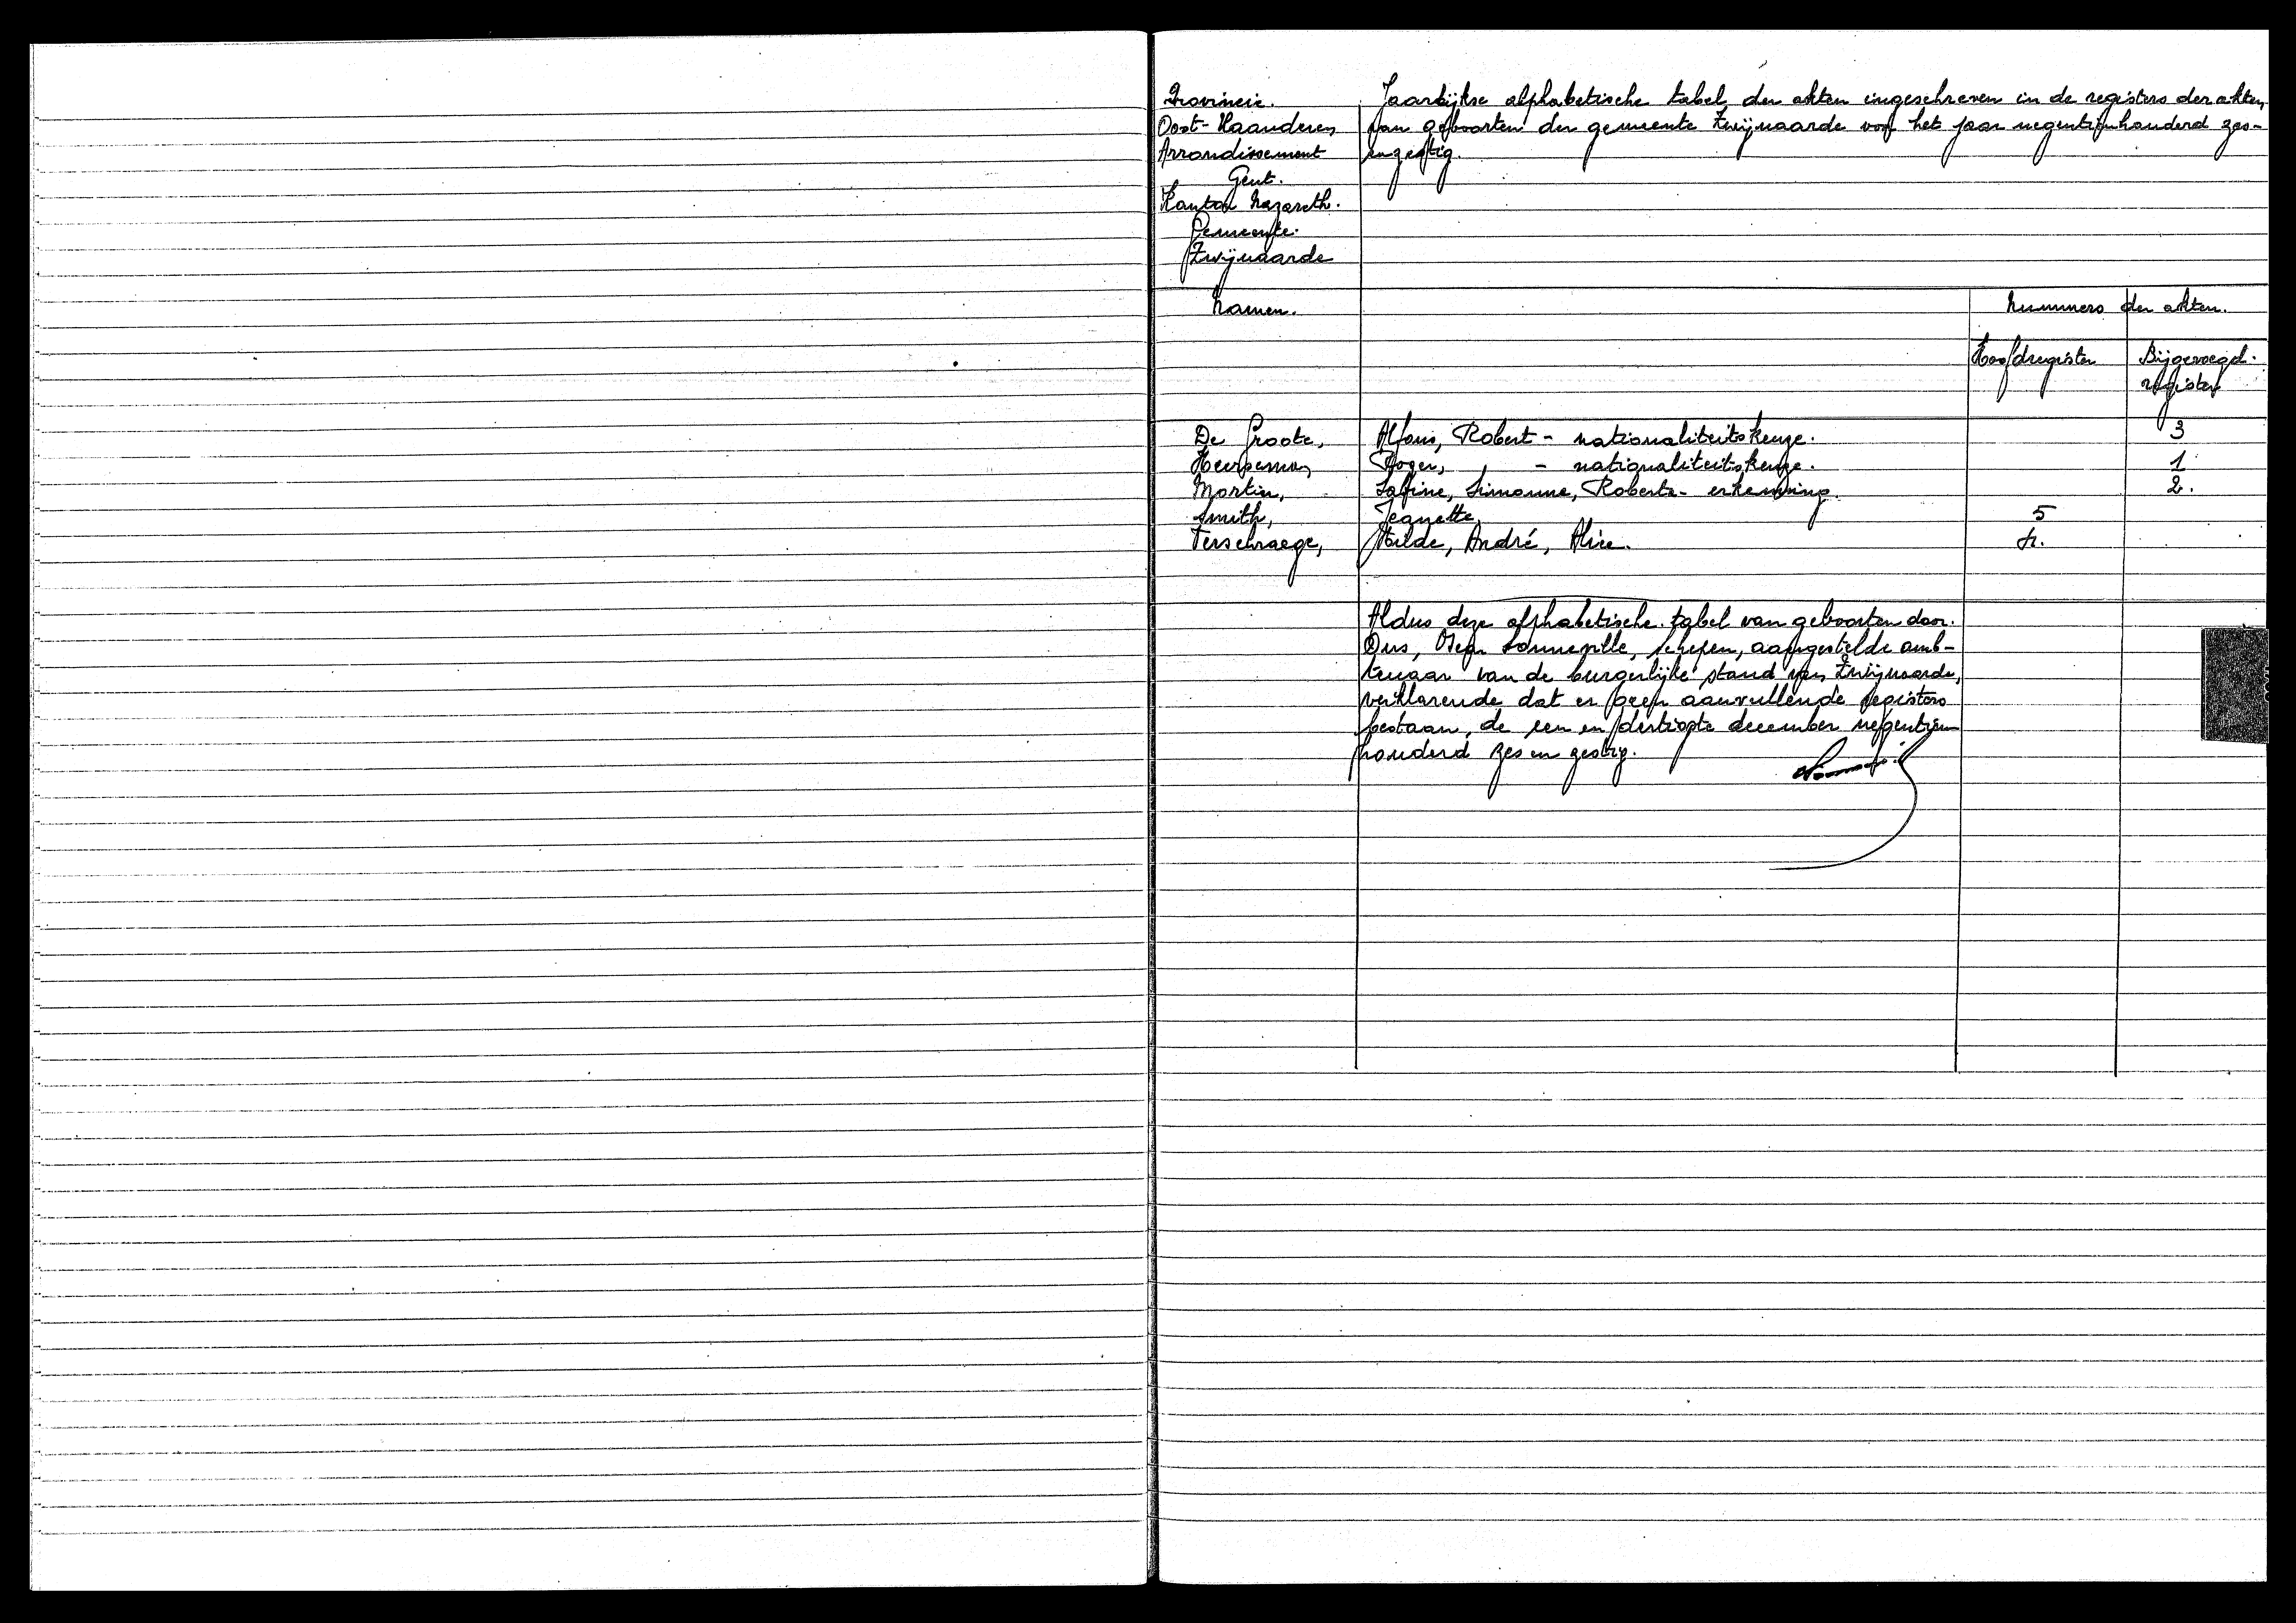 Provincie.
Oost-Vlaanderen
Arrondissement
Gent.
Kanton Nazareth.
Gemeente.
Zwijnaarde
Jaarlijkse alphabetische tabel der akten ingeschreven in de registers der akten
van geboorten der gemeente Zwijnaarde voor het jaar negentienhonderd zes-
enzestig.
Namen. Nummers der akten.
Hoofdregister Bijgevoegd.
register
De Groote, Alfons, Robert - nationaliteitskeuze. 3
Roger, , - nationaliteitskeuze. 1
Martin, Sabine, Simonne, Roberta - erkenning. 2.
Smith, Jeanette 5
Verschraege, Hilde, André, Alice. 4.
Aldus deze alphabetische tabel van geboorten door
Ons, Sonneville, schepen, aangestelde amb-
tenaar van de burgerlijke stand van Zwijnaarde,
verklarende dat er geen aanvullende registers
bestaan, de een en dertigste december negentien
honderd zes en zestig.